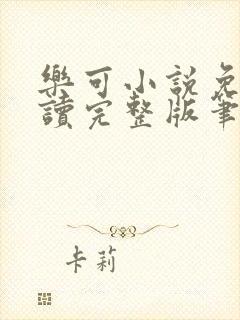 樂可小說免
讀完整版筆
卡莉